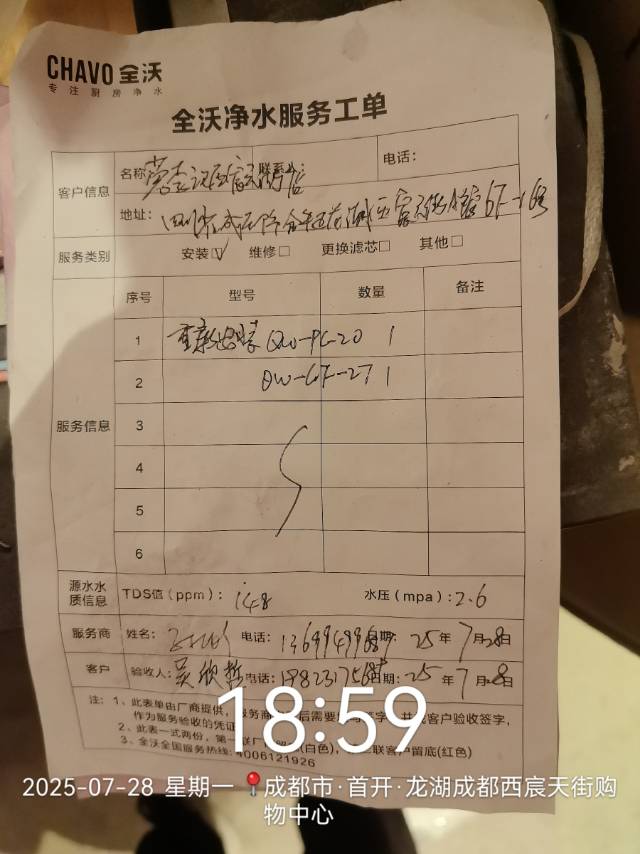 CHAVO 全沃
专注厨房净水
全沃净水服务工单
客户信息
名称
联系
电话：
地址：
服务类别 安装☑ 维修□ 更换滤芯□ 其他□
服务信息
序号 型号 数量 备注
1 重新安装 QW-PC-20 1
2 QW-CF-27 1
3
4
5
6
源水水质信息 TDS值（ppm）：148 水压（mpa）：2.6
服务商 姓名： 电话： 日期：25年7月28日
客户 验收人：吴欣哲 电话： 日期：25年7月28日
注：1、此表单由厂商提供，服务商 后需要 签字，并 客户验收签字，
作为服务验收的凭证
2、此表一式两份，第一联厂 (白色)， 二联客户留底(红色)
3、全沃全国服务热线：4006121926
18:59
2025-07-28 星期一 成都市·首开·龙湖成都西宸天街购
物中心